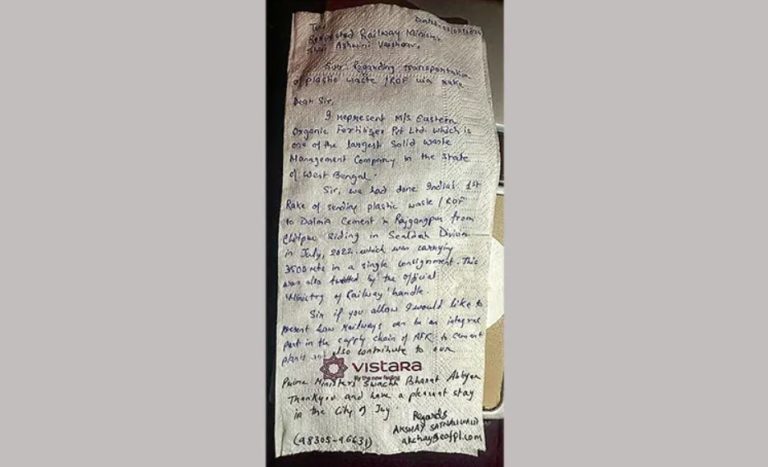 To,
Respected Railway Minister,
Shri Ashwini Vaishnav,
Sub: Regarding transportation
of plastic waste / RDF via rake
Dear Sir,
I represent M/s Eastern
Organic Fertilizer Pvt Ltd. which is
one of the largest Solid waste
Management Company in the state
of West Bengal.
Sir, we had done India's 1st
Rake of sending plastic waste / RDF
to Dalmia Cement in Rajgangpur from
Chitpur Siding in Sealdah Division
in July, 2022. which was carrying
3500 in a single consignment. This
was also tweeted by the official
Ministry of Railway handle.
Sir if you allow I would like to
present how Railways can be an integral
part in the supply chain of AFR to cement
plants also contribute to our
VISTARA
fly the new feeling
Prime Ministers Swachh Bharat Abhiyan
Thankyou and have a pleasent stay
in the City of Joy.
Regards
AKSHAY
(98305-96631)
akshay@eofpl.com